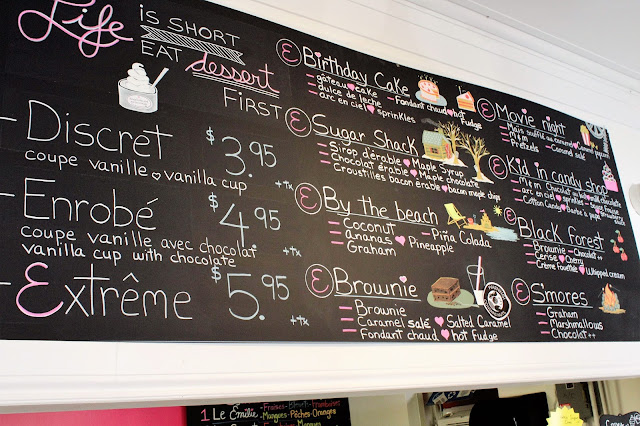 Life
IS SHORT
EAT
dessert
FIRST
- Discret $3.95
coupe vanille vanilla cup + tx
- Enrobé $4.95
coupe vanille avec chocolat
vanilla cup with chocolate + tx
- Extrême $5.95
+ tx
E Birthday Cake
gâteau cake
dulce de leche Fondant chaud hot Fudge
arc en ciel sprinkles
E Sugar Shack
Sirop d'érable Maple Syrup
Chocolat érable Maple chocolate
Croustilles bacon érable bacon maple chips
E By the beach
Coconut
Ananas Pineapple Piña Colada
Graham
E Brownie
Brownie
Caramel salé Salted Caramel
Fondant chaud hot Fudge
E Movie night
Maïs soufflé au caramel Caramel popcorn
M&M
Pretzels Caramel salé
E Kid in candy shop
M&M Chocolat au lait milk chocolate
arc en ciel sprinkles
Cotton Candy
E Black forest
Brownie Chocolat++
Cerise Cherry
Crème fouettée Whipped cream
E S'mores
Graham
Marshmallows
Chocolat++
1 Le Émilie - Fraises
Mangues - Pêches - Oranges